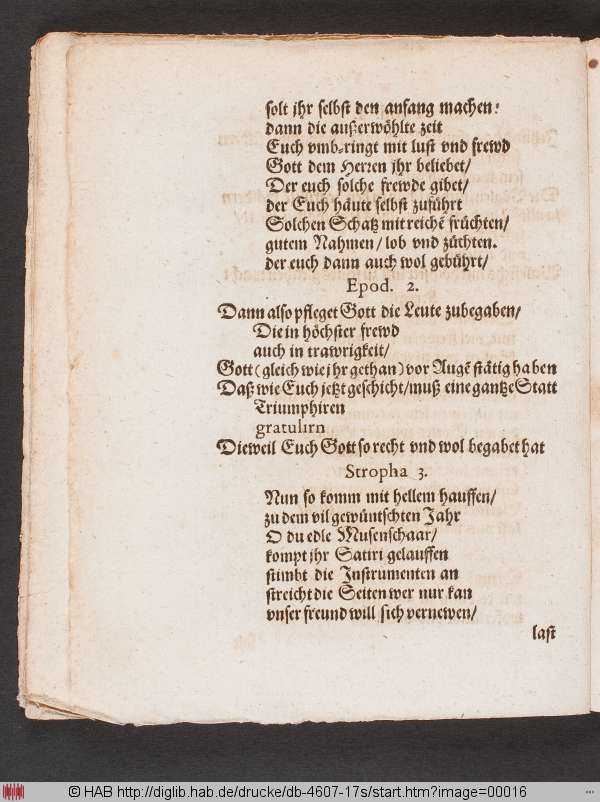 solt jhr selbst den anfang machen:
dann die außerwöhlte zeit
Euch vmb-ringt mit lust vnd frewd
Gott dem Herren jhr beliebet/
Der euch solche frewde gibet/
der Euch häute selbst zuführt
Solchen Schatz mit reichē früchten/
gutem Nahmen/ lob vnd züchten.
der euch dann auch wol gebührt/
Epod. 2.
Dann also pfleget Gott die Leute zubegaben/
Die in höchster frewd
auch in trawrigkeit/
Gott (gleich wie jhr gethan) vor Augē stätig haben
Daß wie Euch jetzt geschicht/ muß eine gantze Statt
Triumphiren
gratulirn
Dieweil Euch Gott so recht vnd wol begabet hat
Stropha 3.
Nun so komm mit hellem hauffen/
zu dem vil gewüntschten Jahr
O du edle Musenschaar/
kompt jhr Satiri gelauffen
stimbt die Instrumenten an
streicht die Seiten wer nur kan
vnser freund will sich vernewen/
last
© HAB http://diglib.hab.de/drucke/db-4607-17s/start.htm?image=00016